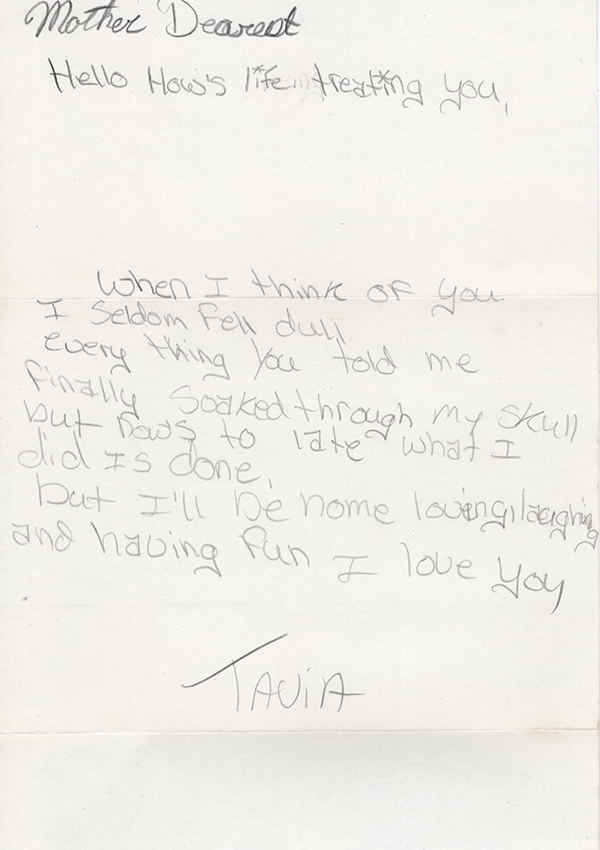 Mother Dearest
Hello How's life treating you,
When I think of you.
I Seldom Fell dull
every thing You told me
finally Soaked through my skull
but nows to late what I
did is done.
but I'll be home loving, laughing
and having fun I love you
TAVIA